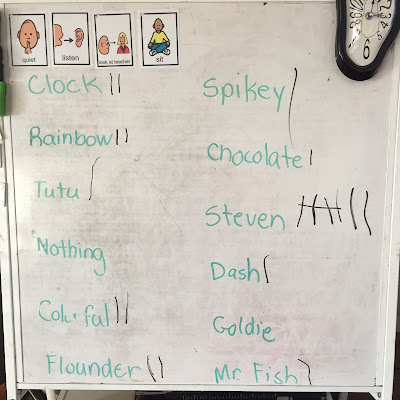 quiet
listen
look at teacher
sit
Clock
Rainbow
Tutu
Nothing
Colorful
Flounder
Spikey
Chocolate
Steven
Dash
Goldie
Mr. Fish